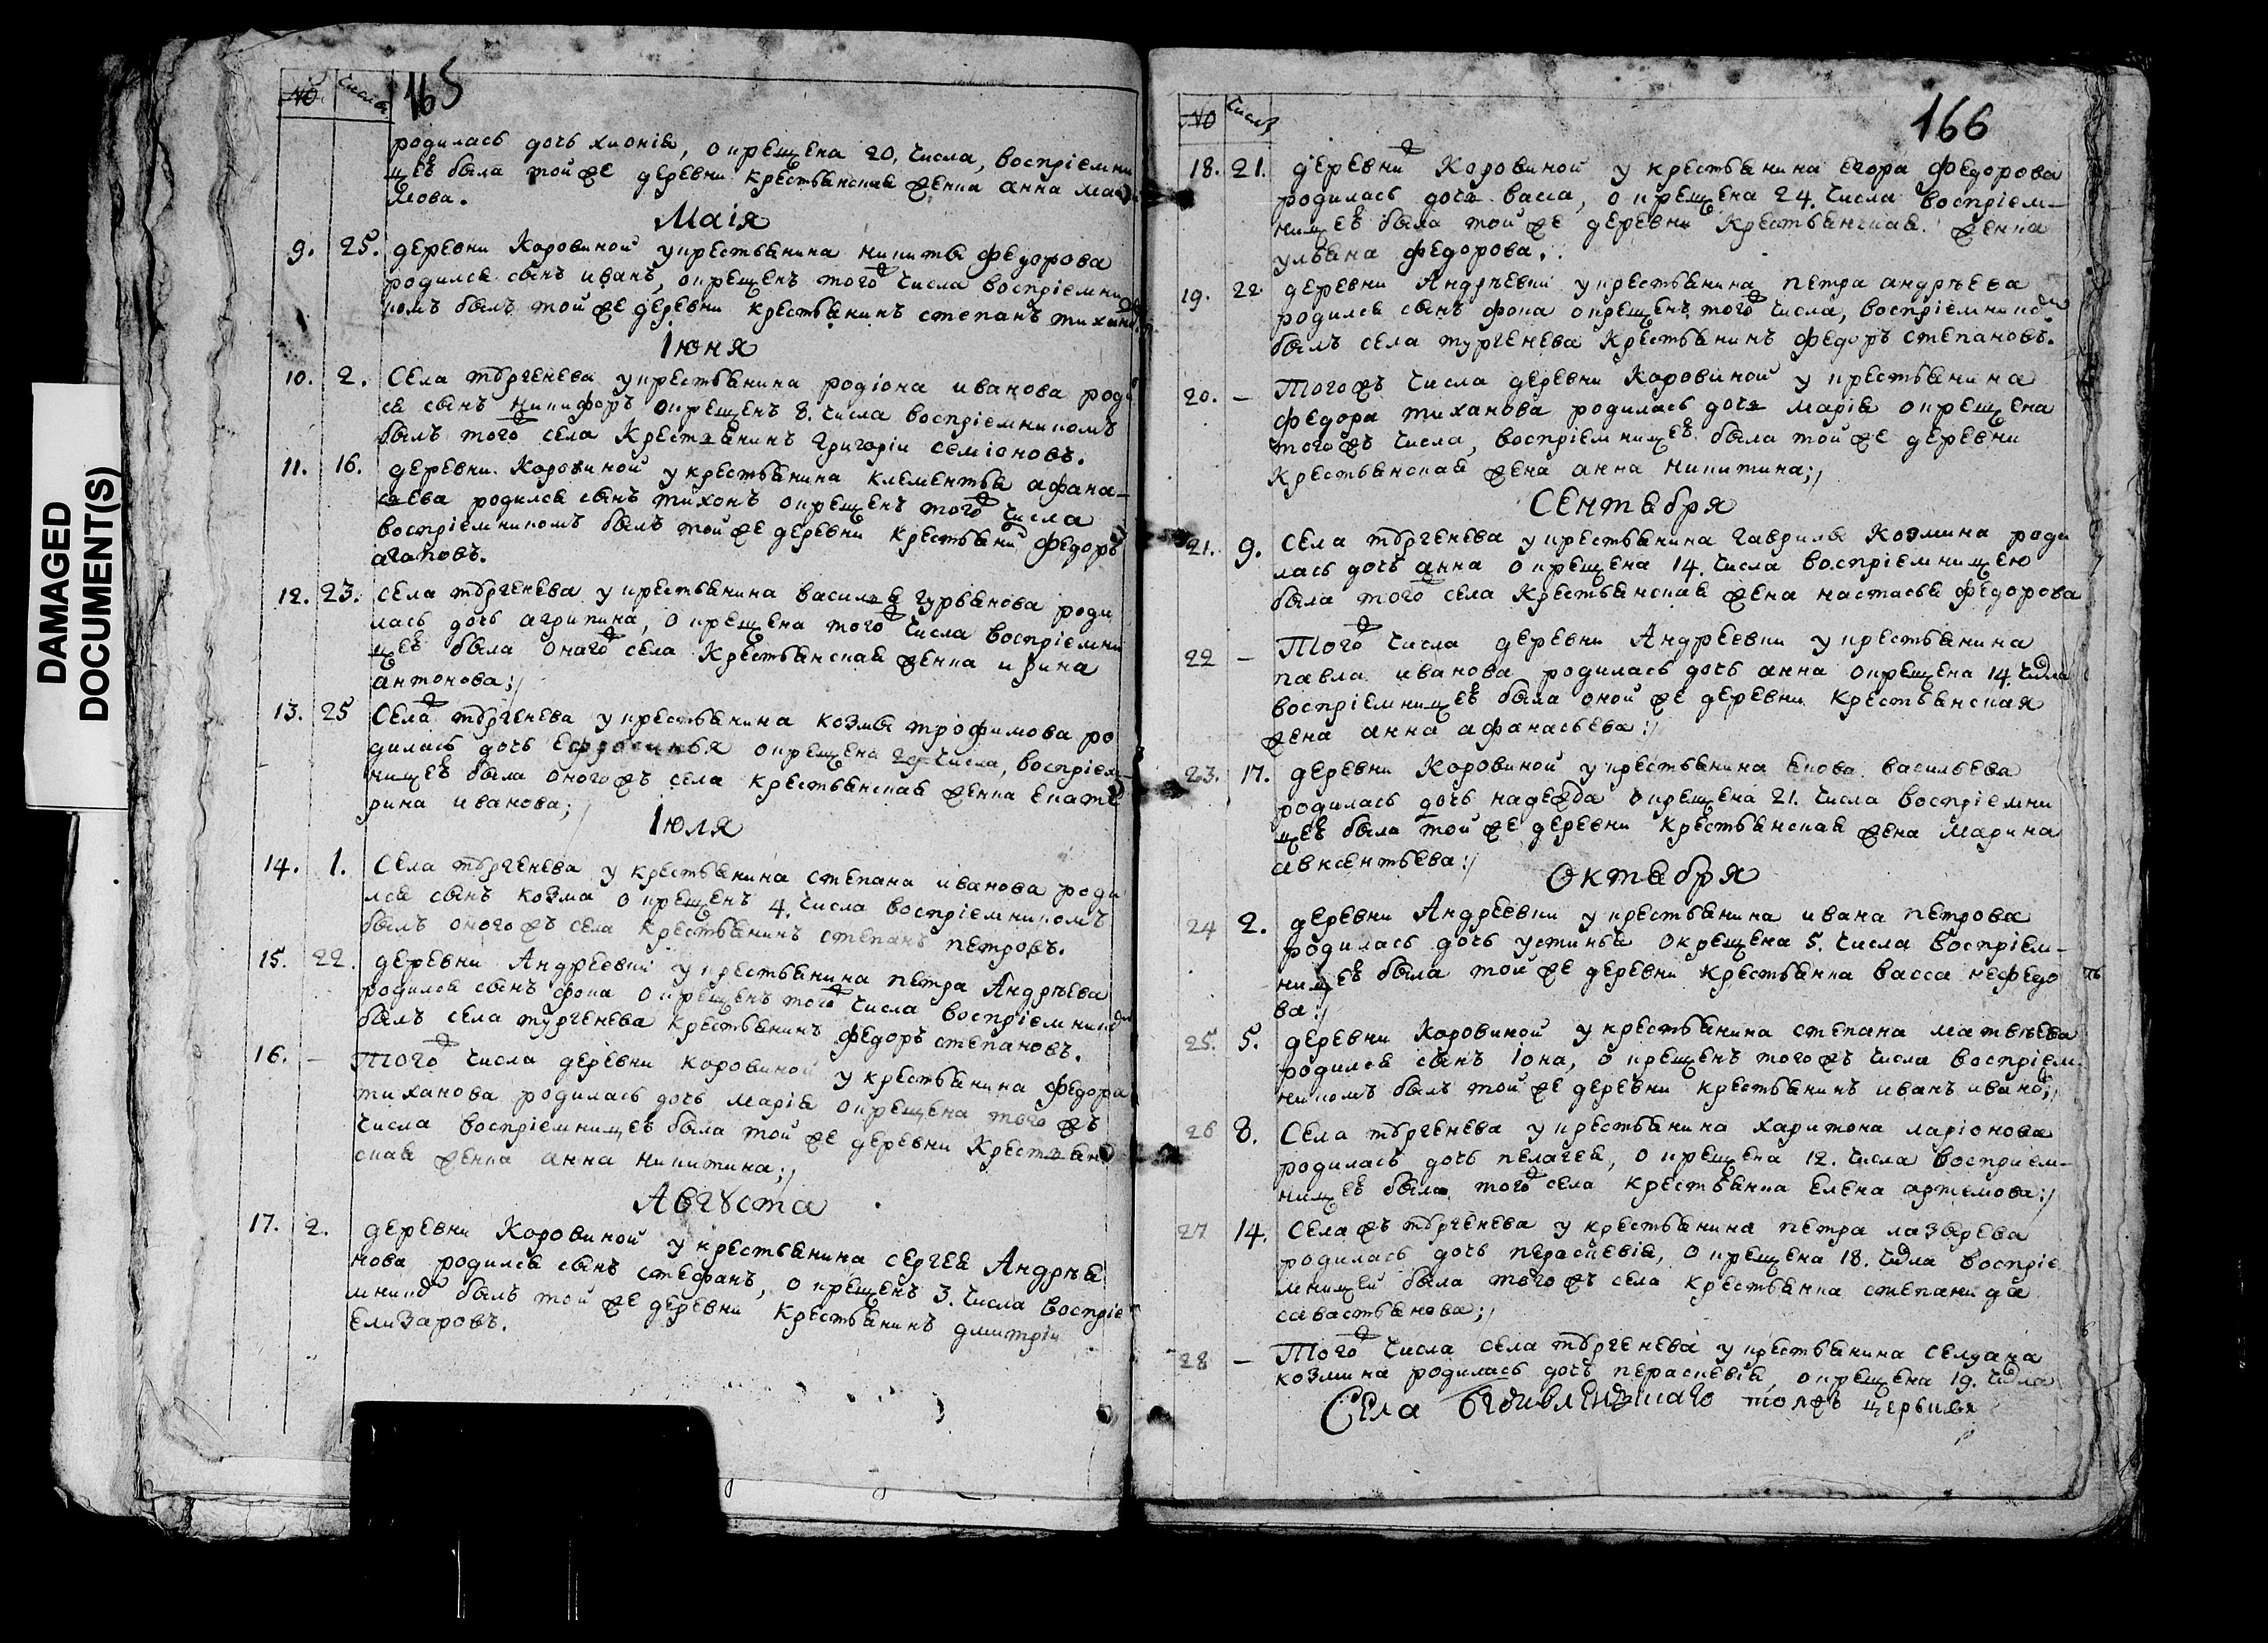 DAMAGED
DOCUMENT(S)
№ числа 165
родилась дочь хионія, окрещена 20. числа, воспріемни
цеѣ была той же деревни крестьянская женка анна
мова.
Маія
9. 25. деревни Коровиной у крестьянина никиты федорова
родился сынъ иванъ, окрещенъ того ж числа воспріемни
комъ былъ той же деревни крестьянинъ степанъ
Іюня
10. 2. Села тꙋргенева у крестьянина родіона иванова роди
ся сынъ никифоръ окрещенъ 8. числа воспріемникомъ
былъ того ж села Крестьянинъ григоріи семіоновъ.
11. 16. деревни Коровиной у крестьянина клементья афана-
сьева родился сынъ тихонъ окрещенъ того ж числа
воспріемникомъ былъ той же деревни крестьяни федоръ
агаповъ.
12. 23. села тꙋргенева у крестьянина василья гурьянова роди
лась дочь агрипина, окрещена того ж числа воспріемни
цеѣ была онаго ж села Крестьянская женка ирина
антонова;/
13. 25 Села ж тꙋргенева у крестьянина козмы трофимова ро
дилась дочь Ефросинья окрещена числа, воспріем-
ницеѣ была оного жъ села крестьянская женка екате
рина иванова;/
Іюля
14. 1. Села тꙋргенева у крестьянина степана иванова роди
лся сынъ козма окрещенъ 4. числа воспріемникомъ
былъ оного жъ села крестьянинъ степанъ петровъ.
15. 22. деревни Андреевки у крестьянина петра Андрѣева
родился сынъ фока окрещенъ того ж числа воспріемником
былъ села тургенева крестьянинъ федоръ степановъ.
16. – Того ж числа деревни коровиной у крестьянина федора
тиханова родилась дочь марія окрещена того жъ
числа воспріемницеѣ была той же деревни Крестьян
ская женка анна никитина;/
Августа
17. 2. деревни Коровиной у крестьянина сергея Андрѣя
нова родился сынъ стефанъ, окрещенъ 3. числа воспріе
мником былъ той же деревни Крестьянинъ дмитріи
елизаровъ.
№ числа 166
18. 21. деревни ж Коровиной у крестьянина егора федорова
родилась дочь васса, окрещена 24. числа воспріем-
ницеѣ была той же деревни крестьянская женка
ульяна федорова.
19. 22 деревни Андрѣевки у крестьянина петра андрѣева
родился сынъ фока окрещенъ того ж числа, воспріемником
былъ села тургенева Крестьянинъ федоръ степановъ.
20. – Того жъ числа деревни Коровиной у крестьянина
федора тиханова родилась дочь марія окрещена
того жъ числа, воспріемницеѣ была той же деревни
Крестьянская жена анна никитина;/
Сентября
21. 9. Села тꙋргенева у крестьянина гаврилы Козмина роди
лась дочь анна окрещена 14. числа воспріемницею
была того ж села Крестьянская жена настасья федорова
22 – Того ж числа деревни Андреевки у крестьянина
павла иванова родилась дочь анна окрещена 14. числа
воспріемницеѣ была оной же деревни Крестьянская
жена анна афанасьева:/
23. 17. деревни Коровиной у крестьянина якова васильева
родилась дочь надежда окрещена 21. числа воспріемни
цеѣ была той же деревни крестьянская жена Марина
авксентьева:/
Октября
24 2. деревни Андреевки у крестьянина ивана петрова
родилась дочь устинья окрещена 5. числа воспріем-
ницеѣ была той же деревни крестьянка васса нефедо
ва:/
25. 5. деревни Коровиной у крестьянина степана матвѣева
родился сынъ іона, окрещенъ того жъ числа воспріем
никомъ былъ той же деревни крестьянинъ иванъ ивано;/
26 8. Села тꙋргенева у крестьянина харитона ларіонова
родилась дочь пелагея, окрещена 12. числа восприем-
ницеѣ была того ж села крестьянка елена артемова:/
27 14. Села жъ тꙋргенева у крестьянина петра лазарева
родилась дочь параскевія, окрещена 18. числа воспріе
мницеи была того жъ села крестьянка степанида
савастьянова;/
28 – Того ж числа села тꙋргенева у крестьянина
козмина родилась дочь параскевія, окрещена 19. числа
Села тожъ церькви